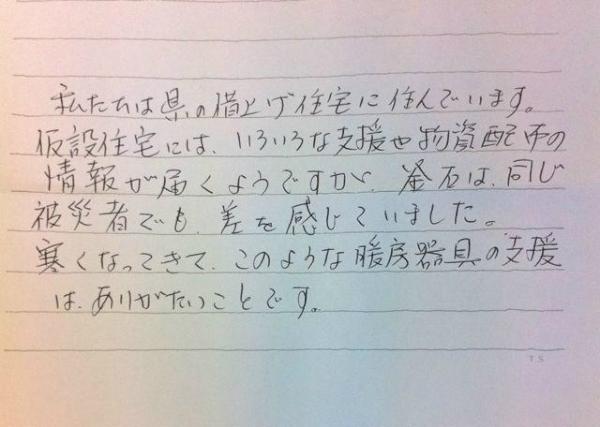 私たちは県の借上げ住宅に住んでいます。
仮設住宅には、いろいろな支援や物資配布の
情報が届くようですが、釜石は、同じ
被災者でも、差を感じていました。
寒くなってきて、このような暖房器具の支援
は、ありがたいことです。
T.S